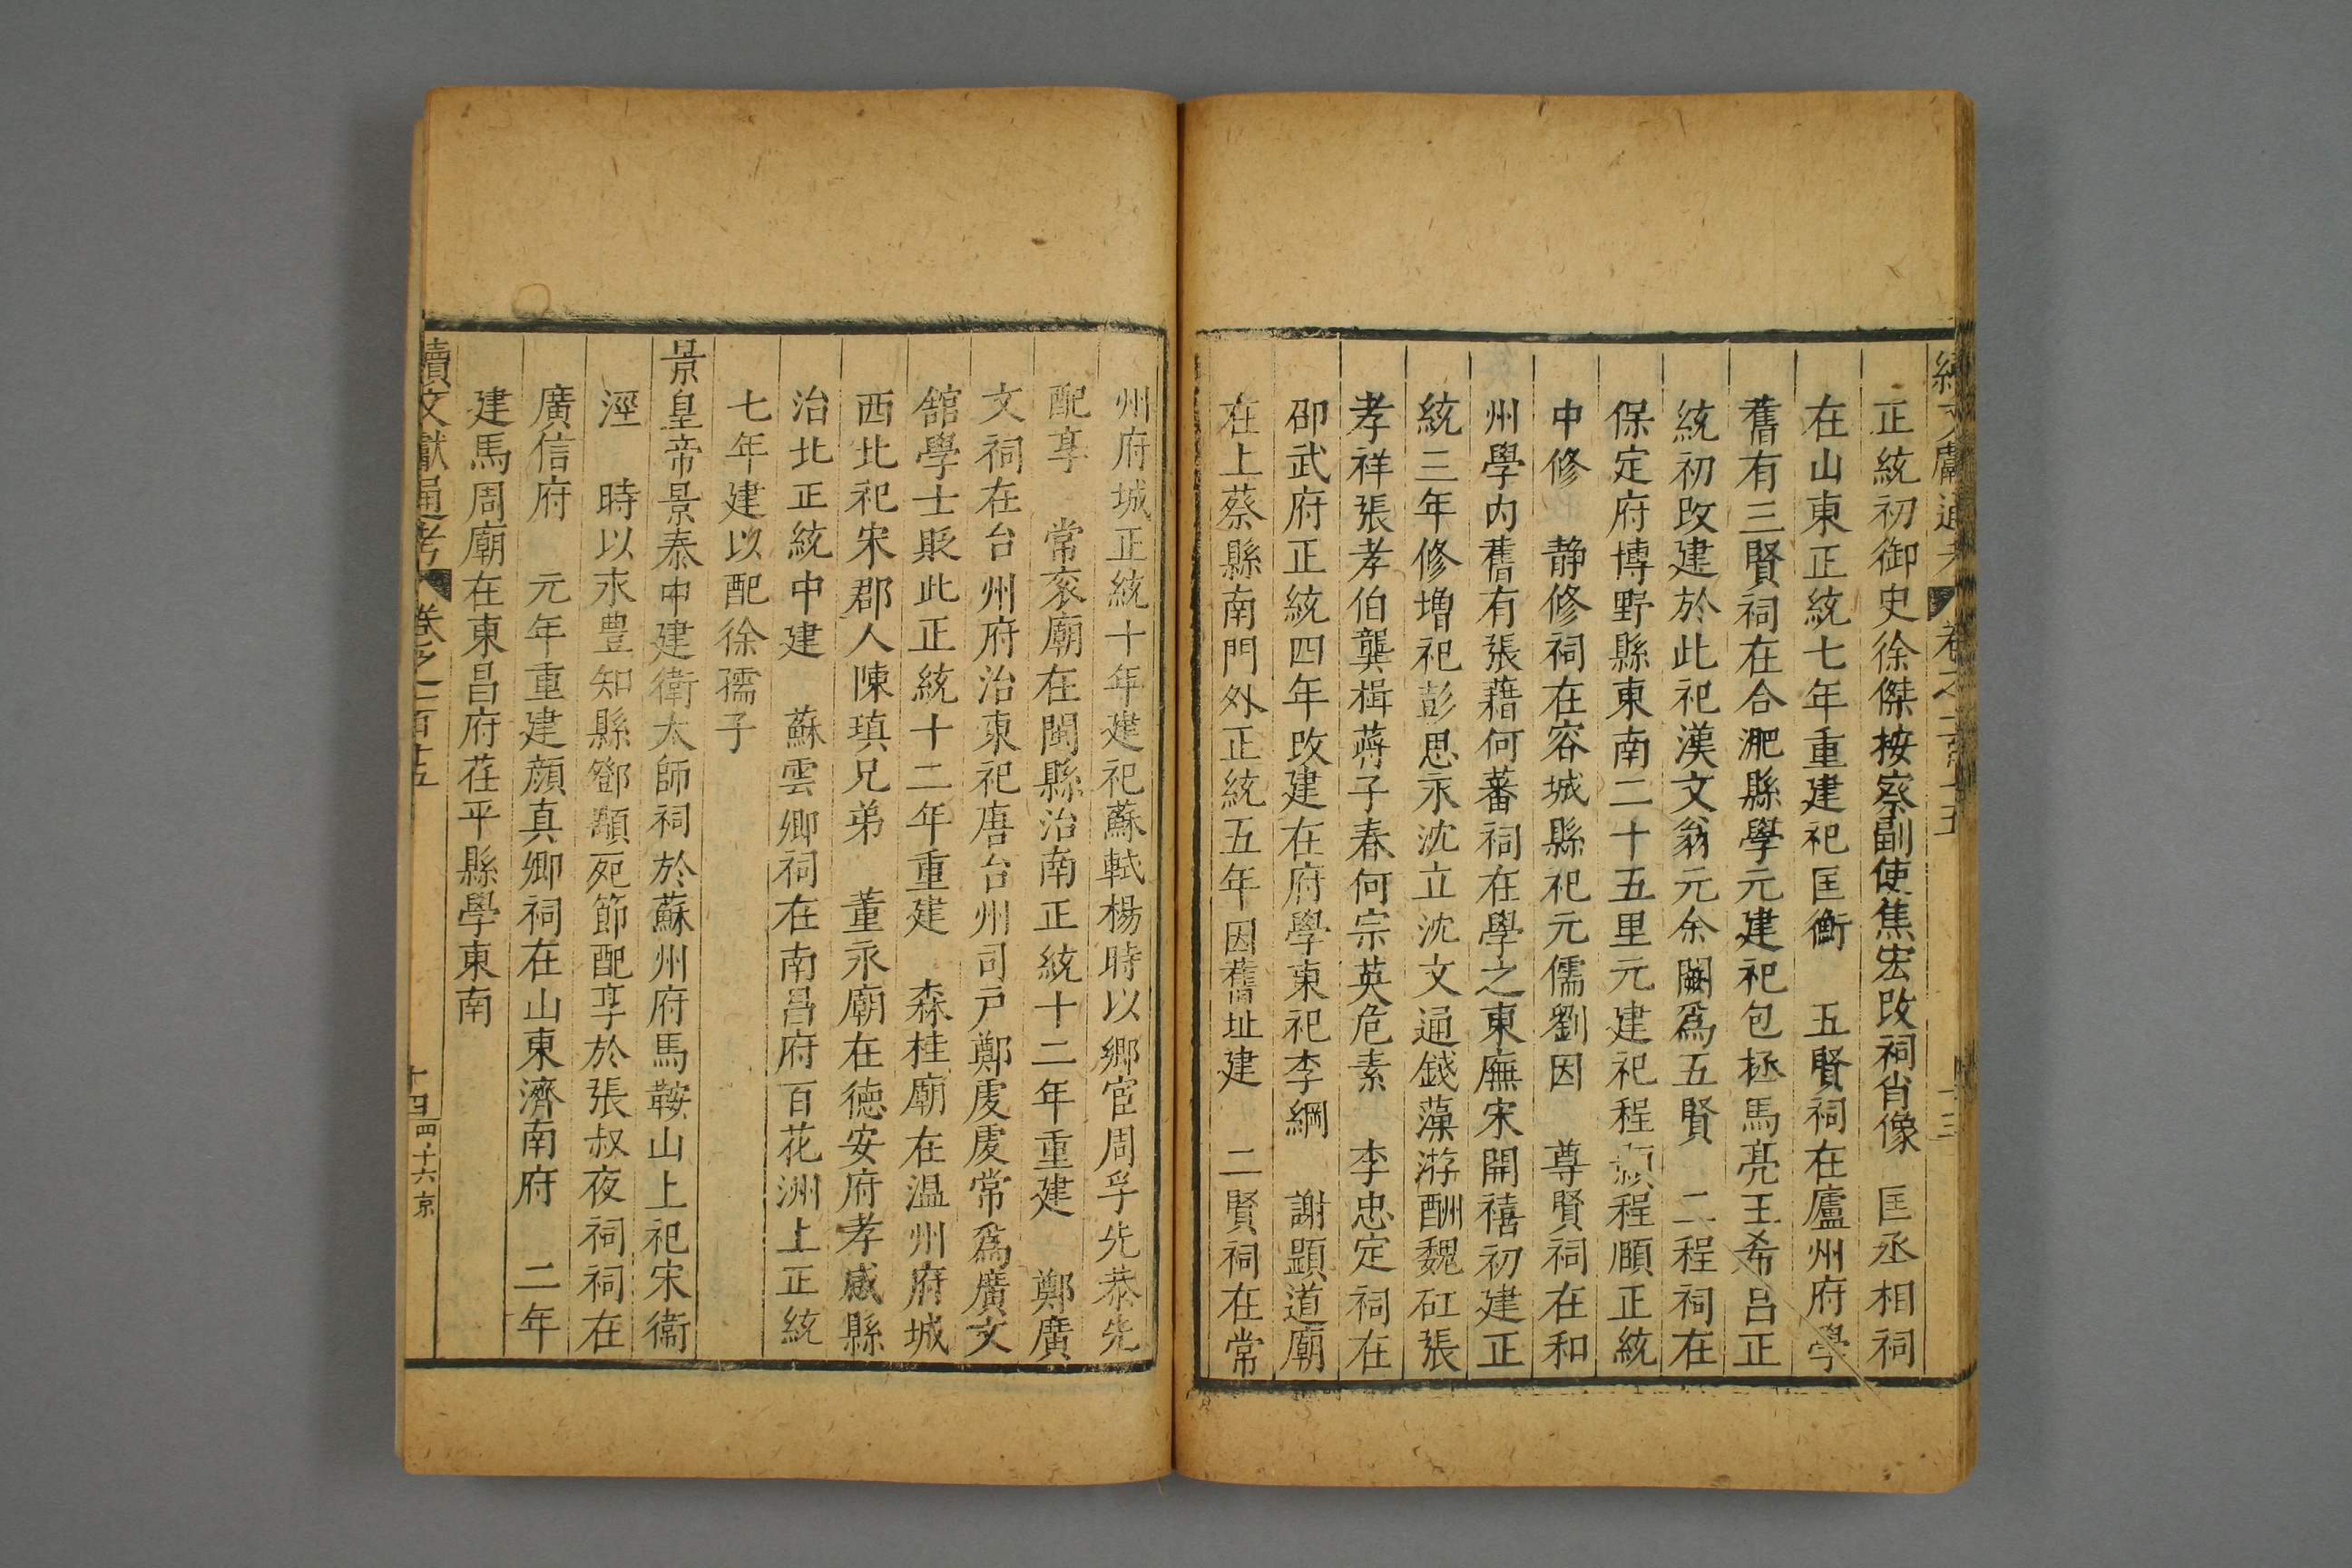 正統初御史徐傑按察副使焦宏改祠肖像 匡丞相祠
在山東正統七年重建祀匡衡 五賢祠在廬州府學
舊有三賢祠在合淝縣學元建祀包拯馬亮王希呂正
統初改建於此祀漢文翁元余闕爲五賢 二程祠在
保定府博野縣東南二十五里元建祀程顥程頤正統
中修 静修祠在容城縣祀元儒劉因 尊賢祠在和
州學内舊有張藉何蕃祠在學之東廡宋開禧初建正
統三年修增祀彭思永沈立沈文通錢藻游酬魏矼張
孝祥張孝伯龔楫蔣子春何宗英危素 李忠定祠在
邵武府正統四年改建在府學東祀李綱 謝顕道廟
在上蔡縣南門外正統五年因舊址建 二賢祠在常
州府城正統十年建祀蘇軾楊時以鄉宦周孚先恭先
配享 常衮廟在閩縣治南正統十二年重建 鄭廣
文祠在台州府治東祀唐台州司戸鄭虔虔常爲廣文
舘學士貶此正統十二年重建 森桂廟在温州府城
西北祀宋郡人陳瑱兄弟 董永廟在徳安府孝感縣
治北正統中建 蘇雲卿祠在南昌府百花洲上正統
七年建以配徐孺子
景皇帝景泰中建衛太師祠於蘇州府馬鞍山上祀宋衛
涇 時以永豊知縣鄧顒死節配享於張叔夜祠祠在
廣信府 元年重建顔真卿祠在山東濟南府 二年
建馬周廟在東昌府茌平縣學東南
續文獻通考 卷之一百十五 十四 四十六 京